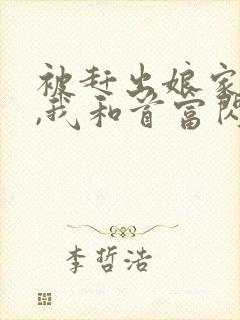 被赶出娘家
,我和首富闪
李哲浩